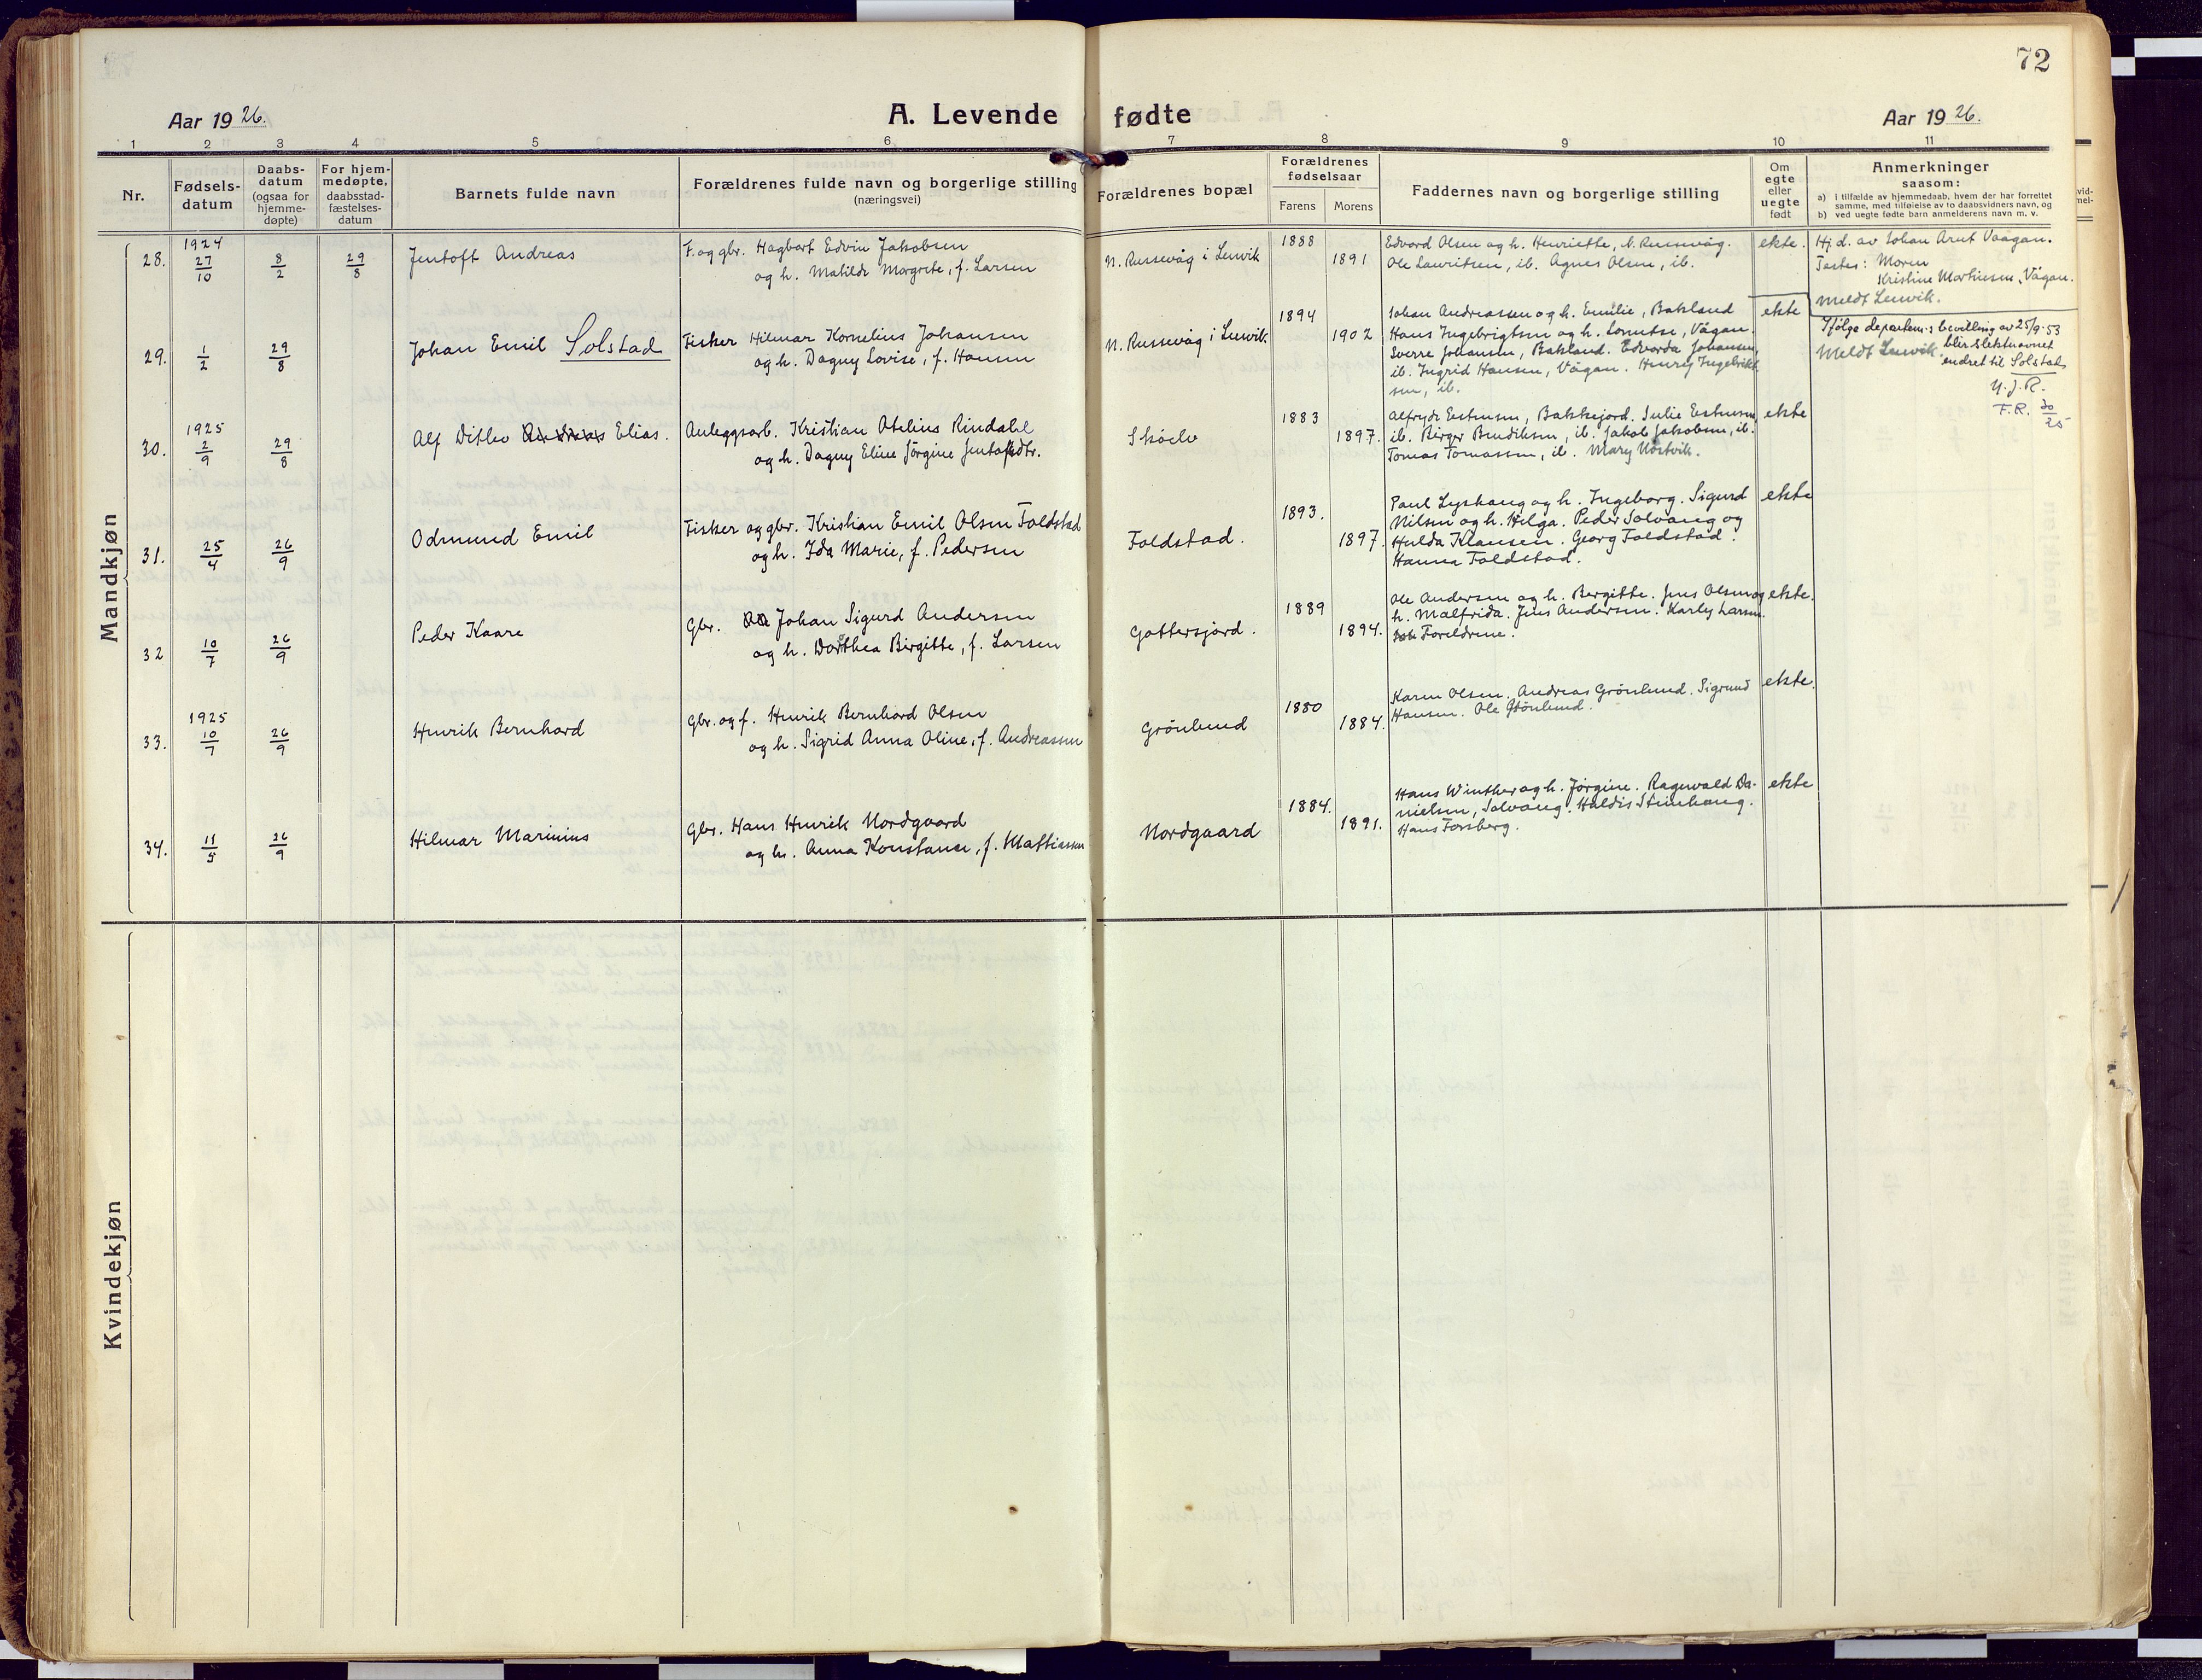 72
Aar 1926.
A. Levende fødte
Aar 1926.
1 2 3 4 5 6 7 8 9 10 11
Nr.
Fødsels-
datum
Daabs-
datum
(ogsaa for
hjemme-
døpte)
For hjem-
medøpte,
daabsstad-
fæstelses-
datum
Barnets fulde navn
Forældrenes fulde navn og borgerlige stilling
(næringsvei)
Forældrenes bopæl
Forældrenes
fødselsaar
Farens Morens
Faddernes navn og borgerlige stilling
Om
egte
eller
uegte
født
Anmerkninger
saasom:
a) i tilfælde av hjemmedaab, hvem der har forrettet
samme, med tilføielse av to daabsvidners navn, og
b) ved uegte fødte barn anmelderens navn m. v.
Mandkjøn
28.
1924
27/10
8/2
29/8
Jentoft Andreas
F. og gbr. Hagbart Edvin Jakobsen
og h. Matilde Margrete, f. Larsen
N. Russevåg i Lenvik
1888
1891
Edvard Olsen og h. Henriette, N. Russevåg.
Ole Lauritsen, ib. Agnes Olsen, ib.
ekte.
Hj. d. av Johan Arnt Vaagan.
Testes: Moren
Kristine Martinsen, Vågan.
Meldt Lenvik.
29.
1/2
29/8
Johan Emil Solstad
Fisker Hilmar Kornelius Johansen
og h. Dagny Lovise, f. Hansen
N. Russevåg i Lenvik.
1894
1902
Johan Andreassen og h. Emilie, Bakland
Hans Ingebrigtsen og h. Lorntse, Vågan.
Sverre Johansen, Bakland. Edvarda Johansen,
ib. Ingrid Hansen, Vågan. Henry Ingebrikt-
sen, ib.
ekte
Ifølge departem:s bevilling av 25/9-53
blir slektsnavnet
Meldt Lenvik.
endret til Solstad
F.R. 20/25
30.
1925
2/9
29/8
Alf Ditlev Andreas Elias.
Anleggsarb. Kristian Otelius Rindahl
og h. Dagny Eline Jørgine Jentoftsdtr.
Sköelv
1883
1897.
Alfryde Estensen, Bakkejord. Julie Estensen,
ib. Birger Bendiksen, ib. Jakob Jakobsen, ib.
Tomas Tomassen, ib. Mary Nöstvik.
ekte
31.
25/4
26/9
Odmund Emil
Fisker og gbr. Kristian Emil Olsen Foldstad
og h. Ida Marie, f. Pedersen
Foldstad.
1893.
1897.
Paul Lyshaug og h. Ingeborg. Sigurd
Nilsen og h. Helga. Peder Solvang og
Hulda Klausen. Georg Foldstad.
Hanna Foldstad.
ekte
32
10/7
26/9
Peder Kaare
Gbr. Johan Sigurd Andersen
og h. Dorthea Birgitte, f. Larsen
Gottersjord.
1889
1894.
Ole Andersen og h. Bergitte. Jens Olsen og
h. Malfrida. Jens Andersen. Karly Larsen.
Foreldrene.
ekte.
33.
1925
10/7
26/9
Henrik Bernhard
Gbr. og f. Henrik Bernhard Olsen
og h. Sigrid Anna Oline, f. Andreassen
Grönlund
1880
1884.
Karen Olsen. Andreas Grönlund. Sigrund
Hansen. Ole Grönlund.
ekte.
34.
11/5
26/9
Hilmar Marinius
Gbr. Hans Henrik Nordgaard
og h. Anna Konstanse, f. Mathiassen
Nordgaard
1884.
1891.
Hans Winther og h. Jörgine. Ragnvald Da-
nielsen, Solvang. Haldis Steinhaug.
Hans Forsberg.
ekte
Kvindekjøn